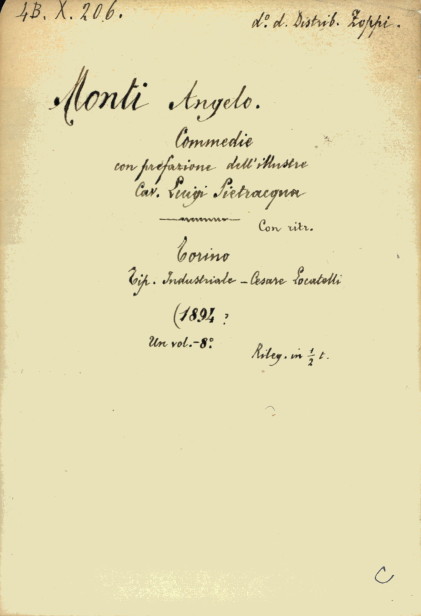 4B. X. 206.
d°. d. Distrib. Zoppi.
Monti Angelo.
Commedie
con prefazione dell'illustre
Cav. Luigi Pietracqua
Con ritr.
Torino
Tip. Industriale - Cesare Locatelli
(1894 ?
Un vol.-8°
Rileg. in 1/2 t.
C